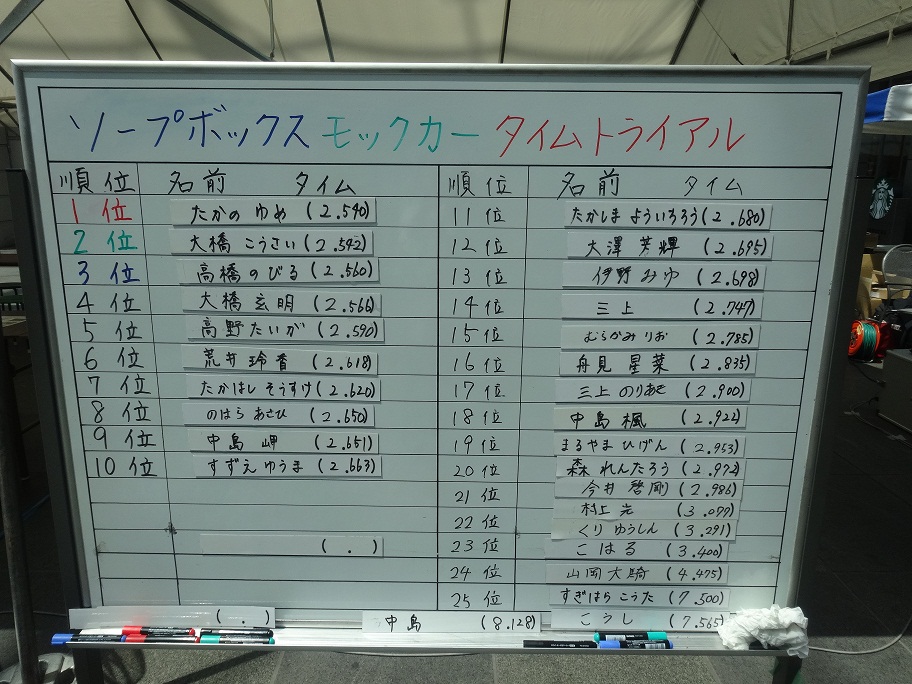 ソープボックス モックカー タイムトライアル
順位 名前 タイム
1位 たかの ゆめ (2.540)
2位 大橋 こうさい (2.542)
3位 高橋のびる (2.560)
4位 大橋玄明 (2.566)
5位 高野たいが (2.590)
6位 荒井玲香 (2.618)
7位 たかはし そうすけ (2.620)
8位 のはら あさひ (2.650)
9位 中島 岬 (2.651)
10位 すずえ ゆうま (2.663)
( . )
( . )
順位 名前 タイム
11位 たかしま よういちろう (2.680)
12位 大澤 芳輝 (2.695)
13位 伊野 みゆ (2.698)
14位 三上 (2.747)
15位 むらかみ りお (2.785)
16位 舟見 星菜 (2.835)
17位 三上 のりあき (2.900)
18位 中島 楓 (2.922)
19位 まるやま ひげん (2.953)
20位 森 れんたろう (2.972)
21位 今井 啓剛 (2.986)
22位 村上 光 (3.077)
くり ゆうしん (3.291)
23位 こはる (3.400)
24位 山岡大騎 (4.475)
25位 すぎはら こうた (7.500)
こうし (7.565)
中島 (8.128)